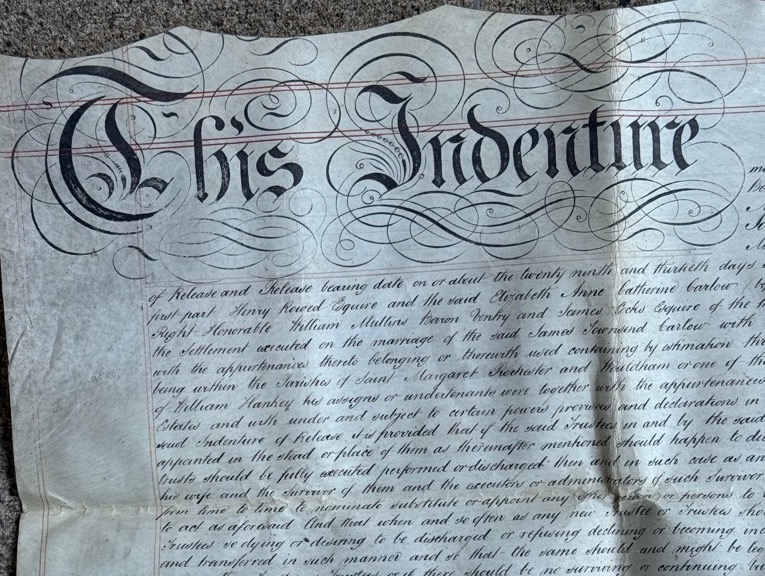 This Indenture
of Release and Release bearing date on or about the twenty ninth and thirtieth days
first part Henry Rowed Esquire and the said Elizabeth Anne Catherine Carlow
Right Honorable William Mullins Baron Ventry and James Esquire of the
the Settlement executed on the marriage of the said James Townsend Carlow with
with the appurtenances thereto belonging or therewith used containing by estimation
being within the Parishes of Saint Margaret Rochester and Wouldham or one of
of William Hankey his assigns or undertenants were together with the appurtenances
Estates and with under and subject to certain powers provisoes and declarations in
said Indenture of Release it is provided that if the said Trustees in and by the said
appointed in the stead or place of them as thereinafter mentioned should happen to
trusts should be fully executed performed or discharged then and in such case as
his wife and the Survivor of them and the executors or administrators of such Survivor
from time to time to nominate substitute or appoint any other person or persons to
to act as aforesaid And that when and so often as any new Trustee or Trustees
Trustees so dying or desiring to be discharged or refusing declining or becoming
and transferred in such manner and so that the same should and might be
Trustees or if there should be no surviving or continuing